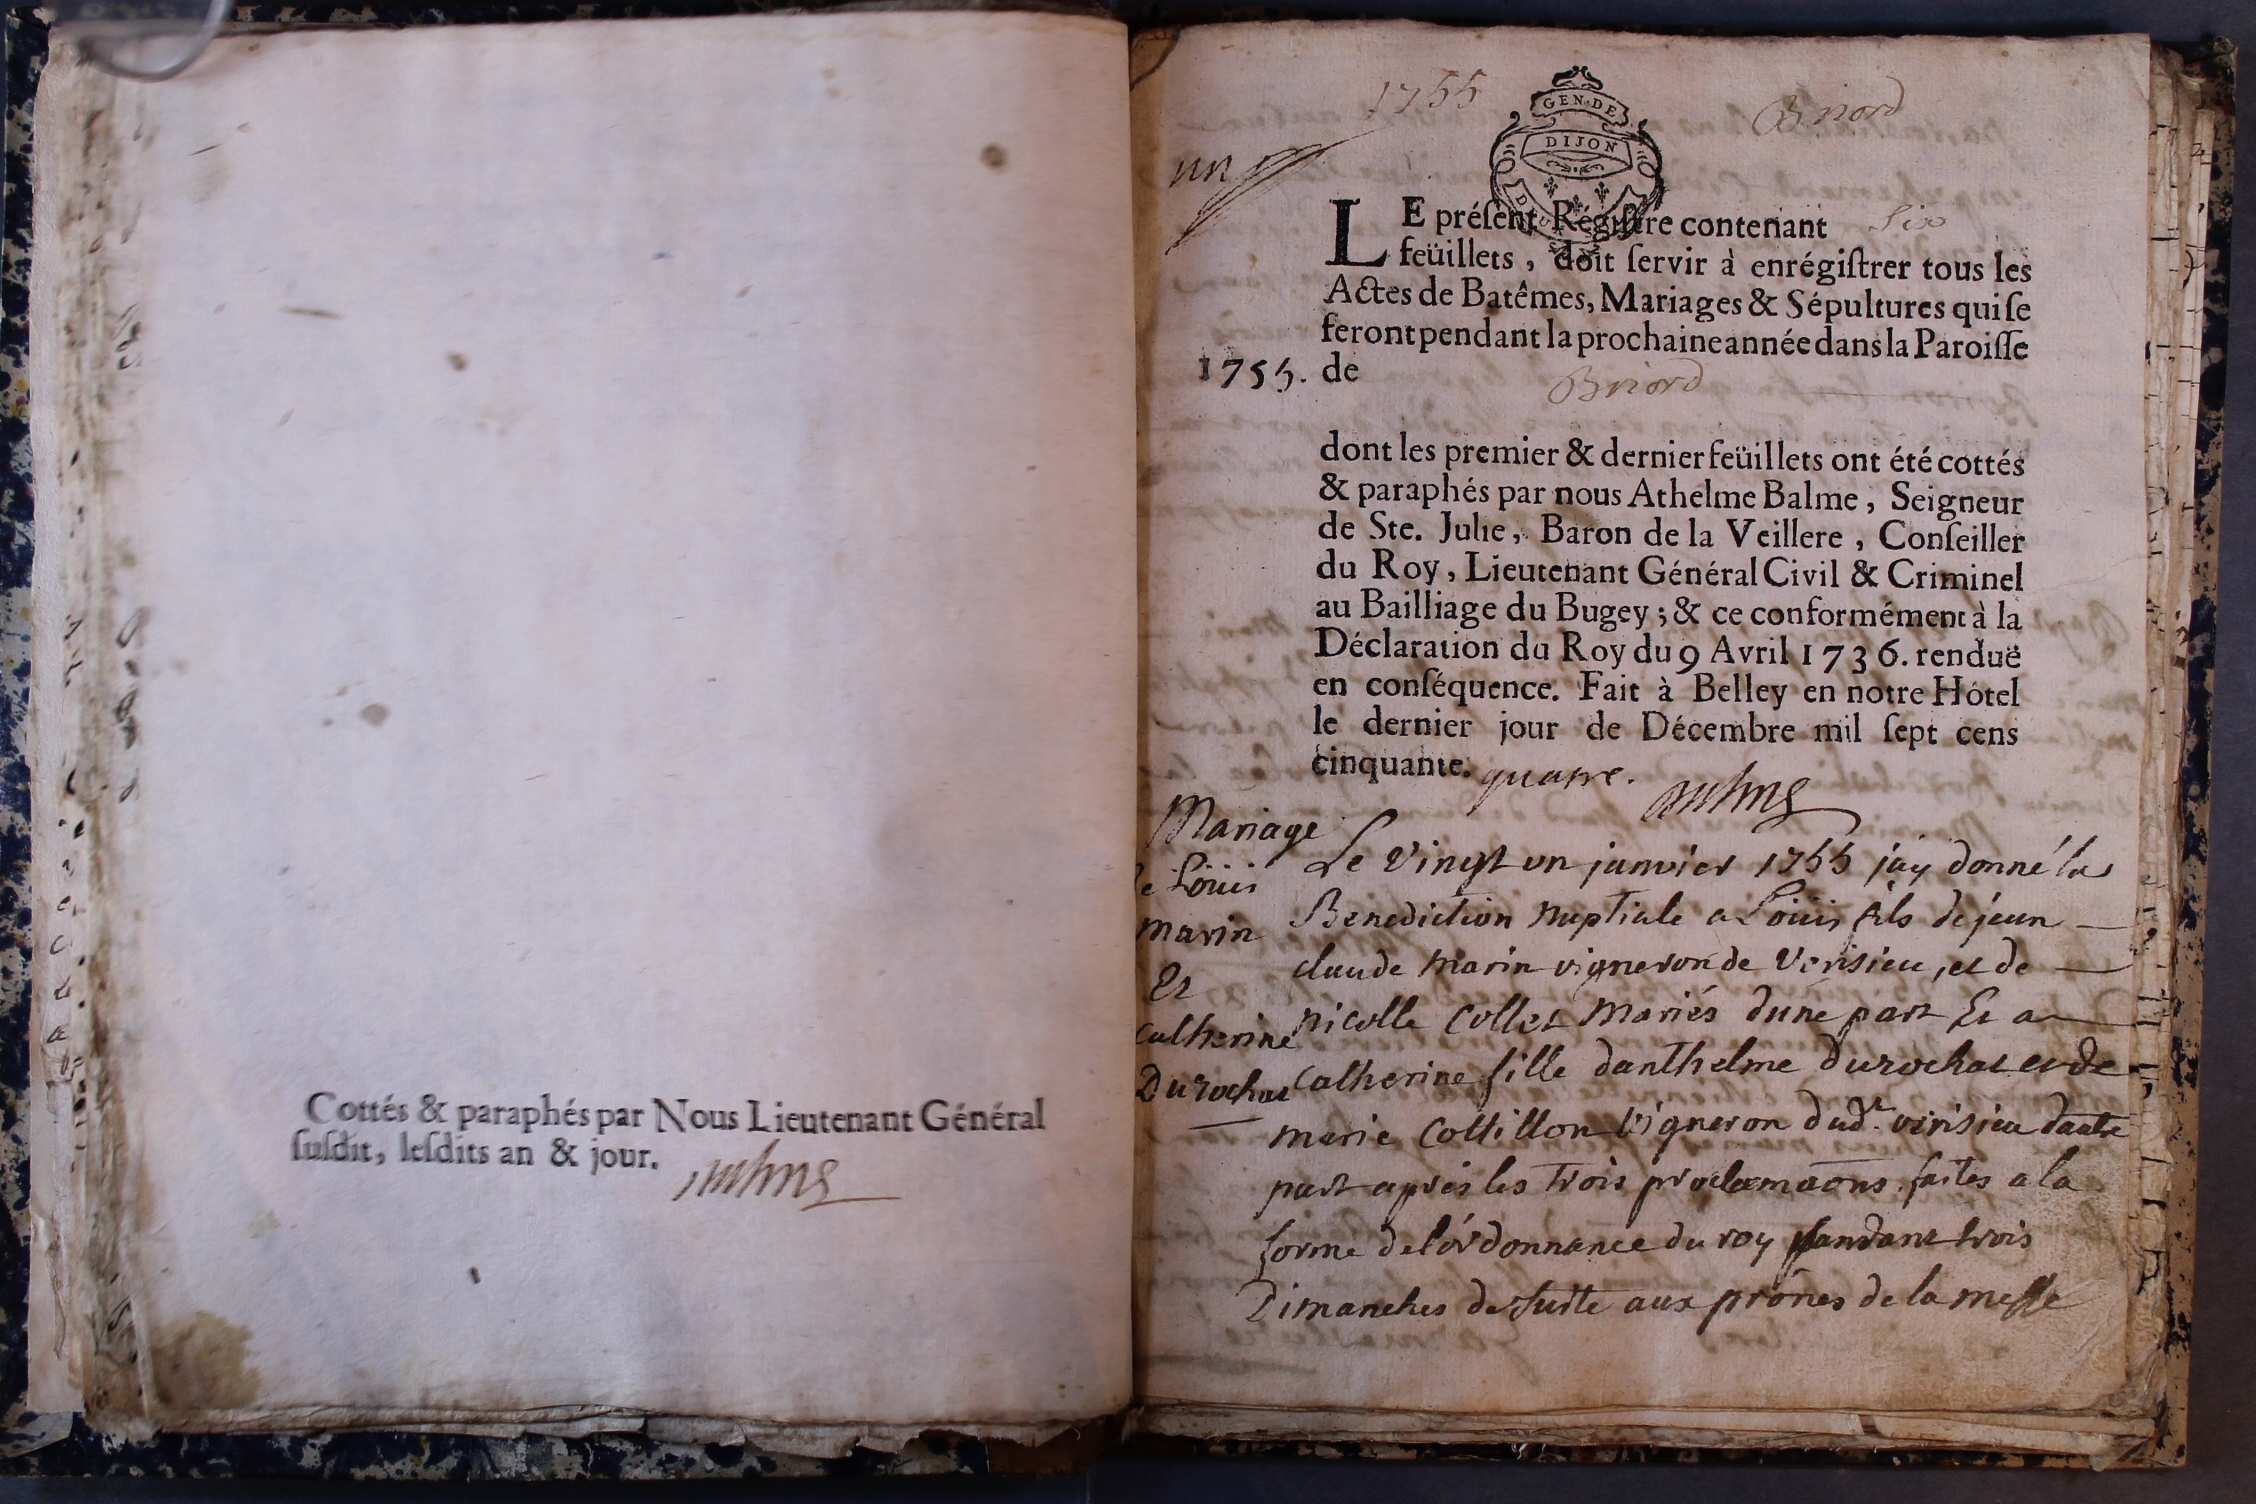 Cottés & paraphés par Nous Lieutenant Général
ſuſdit, leſdits an & jour.
1755
Briord
GEN·DE
DIJON
un
LE préſent Régiſtre contenant six
feüillets, doit ſervir à enrégiſtrer tous les
Actes de Batêmes, Mariages & Sépultures qui ſe
feront pendant la prochaine année dans la Paroiſſe
1755. de Briord
dont les premier & dernier feüillets ont été cottés
& paraphés par nous Athelme Balme, Seigneur
de Ste. Julie, Baron de la Veillere, Conſeiller
du Roy, Lieutenant Général Civil & Criminel
au Bailliage du Bugey; & ce conformément à la
Déclaration du Roy du 9 Avril 1736. renduë
en conſéquence. Fait à Belley en notre Hôtel
le dernier jour de Décembre mil ſept cens
cinquante. quatre.
Mariage
de Loüis
marin
Et
catherine
Durochat
Le vingt un janvier 1755 jay donné la
Benediction nuptiale a Loüis fils de jean
claude marin vigneron de verisieu, et de
nicolle collet mariés dune part Et a
catherine fille danthelme durochat et de
marie cottillon vigneron dudt. verisieu dautre
part apres les trois proclamaons faites a la
forme de lórdonnance du roy pandant trois
Dimanches de suite aux prônes de la messe